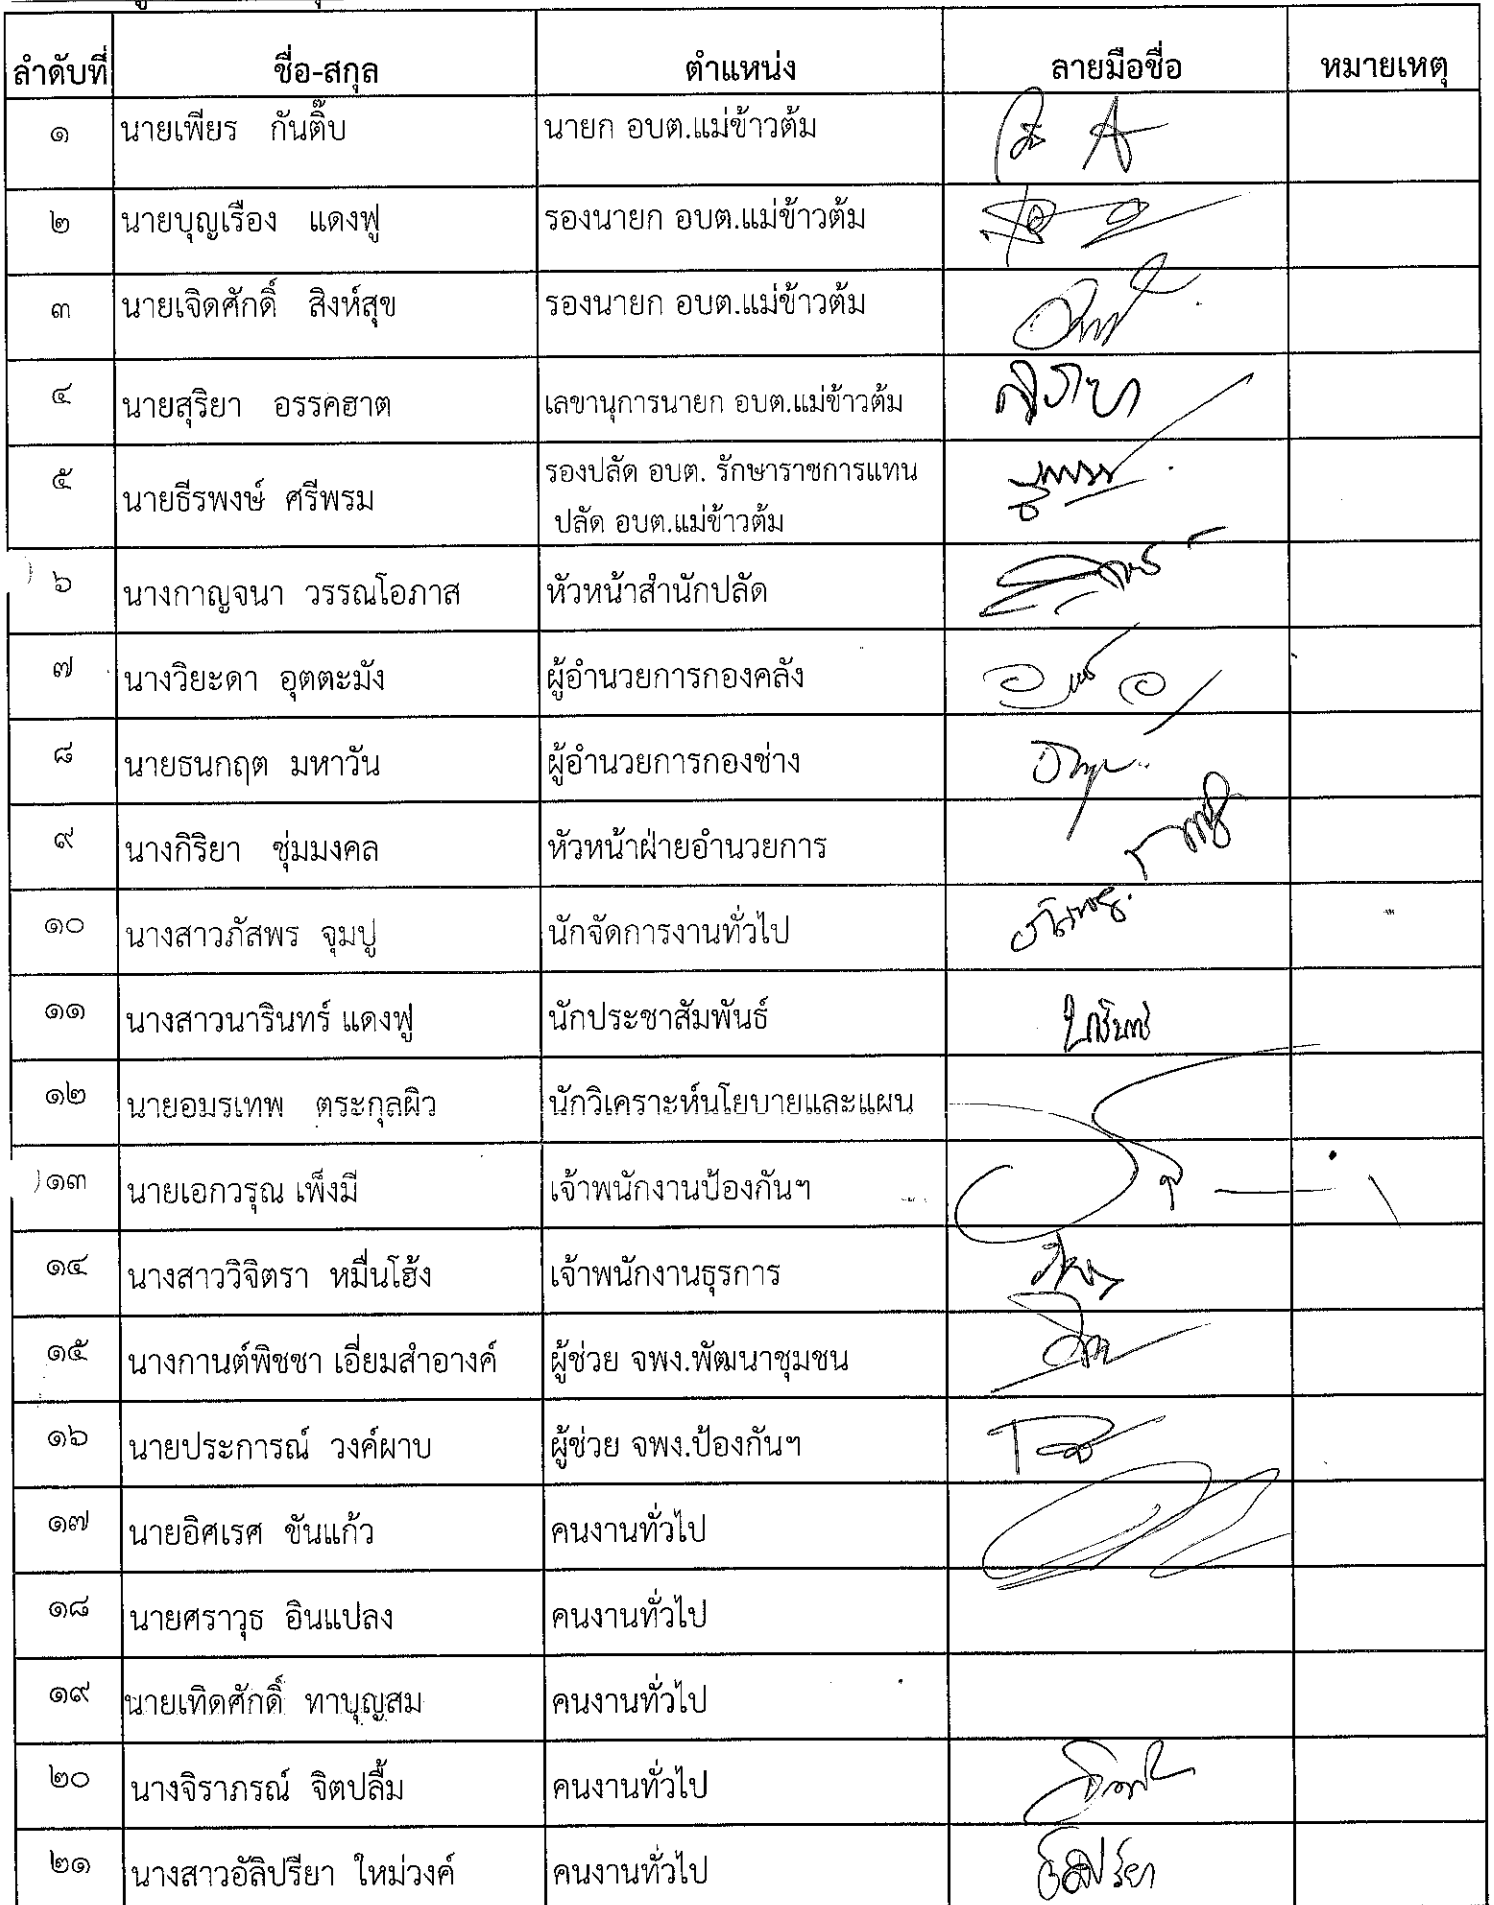 ลำดับที่ ชื่อ-สกุล ตำแหน่ง ลายมือชื่อ หมายเหตุ
๑ นายเพียร กันติ๊บ นายก อบต.แม่ข้าวต้ม
๒ นายบุญเรือง แดงฟู รองนายก อบต.แม่ข้าวต้ม
๓ นายเจิดศักดิ์ สิงห์สุข รองนายก อบต.แม่ข้าวต้ม
๔ นายสุริยา อรรคฮาต เลขานุการนายก อบต.แม่ข้าวต้ม
๕ นายธีรพงษ์ ศรีพรม รองปลัด อบต. รักษาราชการแทน
ปลัด อบต.แม่ข้าวต้ม
๖ นางกาญจนา วรรณโอภาส หัวหน้าสำนักปลัด
๗ นางวิยะดา อุตตะมัง ผู้อำนวยการกองคลัง
๘ นายธนกฤต มหาวัน ผู้อำนวยการกองช่าง
๙ นางกิริยา ชุ่มมงคล หัวหน้าฝ่ายอำนวยการ
๑๐ นางสาวภัสพร จุมปู นักจัดการงานทั่วไป
๑๑ นางสาวนารินทร์ แดงฟู นักประชาสัมพันธ์
๑๒ นายอมรเทพ ตระกูลผิว นักวิเคราะห์นโยบายและแผน
๑๓ นายเอกวรุณ เพ็งมี เจ้าพนักงานป้องกันฯ
๑๔ นางสาววิจิตรา หมื่นโฮ้ง เจ้าพนักงานธุรการ
๑๕ นางกานต์พิชชา เอี่ยมสำอางค์ ผู้ช่วย จพง.พัฒนาชุมชน
๑๖ นายประการณ์ วงค์ผาบ ผู้ช่วย จพง.ป้องกันฯ
๑๗ นายอิศเรศ ขันแก้ว คนงานทั่วไป
๑๘ นายศราวุธ อินแปลง คนงานทั่วไป
๑๙ นายเทิดศักดิ์ ทาบุญสม คนงานทั่วไป
๒๐ นางจิราภรณ์ จิตปลื้ม คนงานทั่วไป
๒๑ นางสาวอัลิปรียา ใหม่วงค์ คนงานทั่วไป